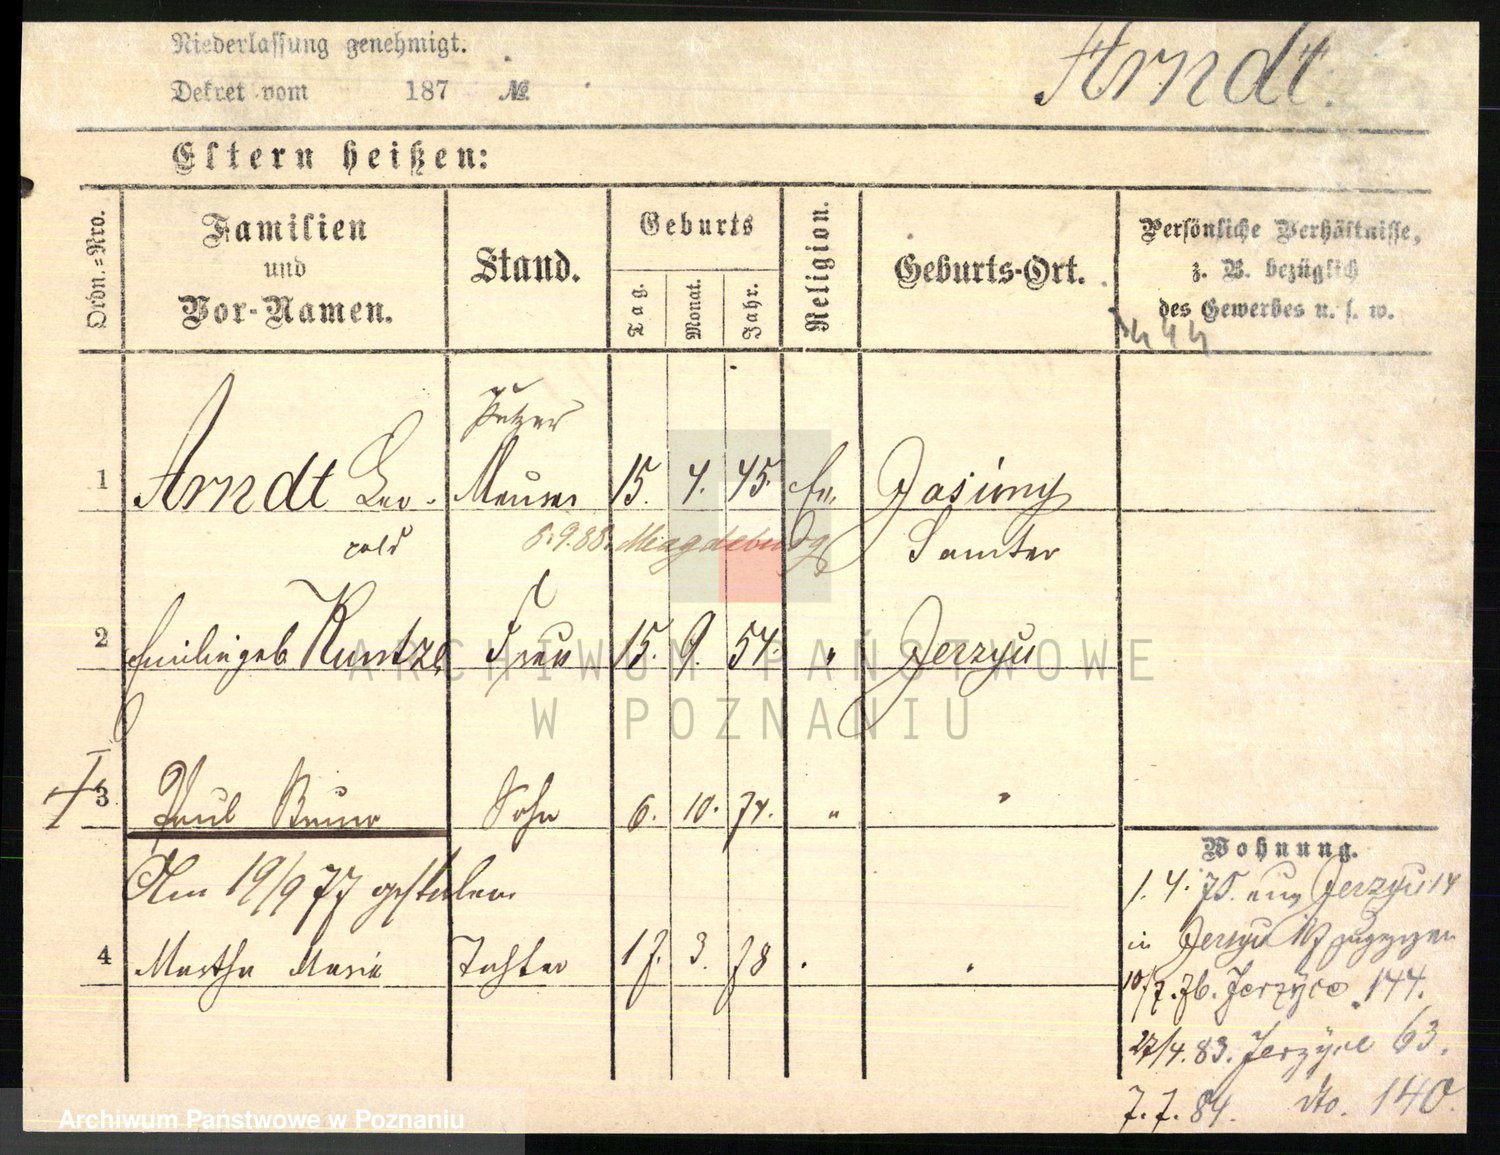 Niederlassung genehmigt.
Arndt.
Dekret vom 187 №
Eltern heißen:
Ordn.=Nro.
Familien
und
Vor-Namen.
Stand.
Geburts
Tag.
Monat.
Jahr.
Religion.
Geburts-Ort.
Persönliche Verhältnisse,
z. B. bezüglich
des Gewerbes u. s. w.
1 Arndt Leo- Maurer 15. 4. 45. Ev.
pold 8.9.88. Magdeburg Samter
2 Emilie geb Kuntze Frau 15. 9. 54. " Jerzyce
3 Paul Bruno Sohn 6. 10. 74. " "
Am 19/9 77 gestorben
4 Martha Marie Tochter 17. 3. 78 . .
Wohnung.
1. 4. 75. aus Jerzyce 14
in Jerzyce
10/7. 76. Jerzyce 144.
27/4. 83. Jerzyce 63.
7. 7. 84. dto. 140.
ARCHIWUM PAŃSTWOWE
W POZNANIU
Archiwum Państwowe w Poznaniu